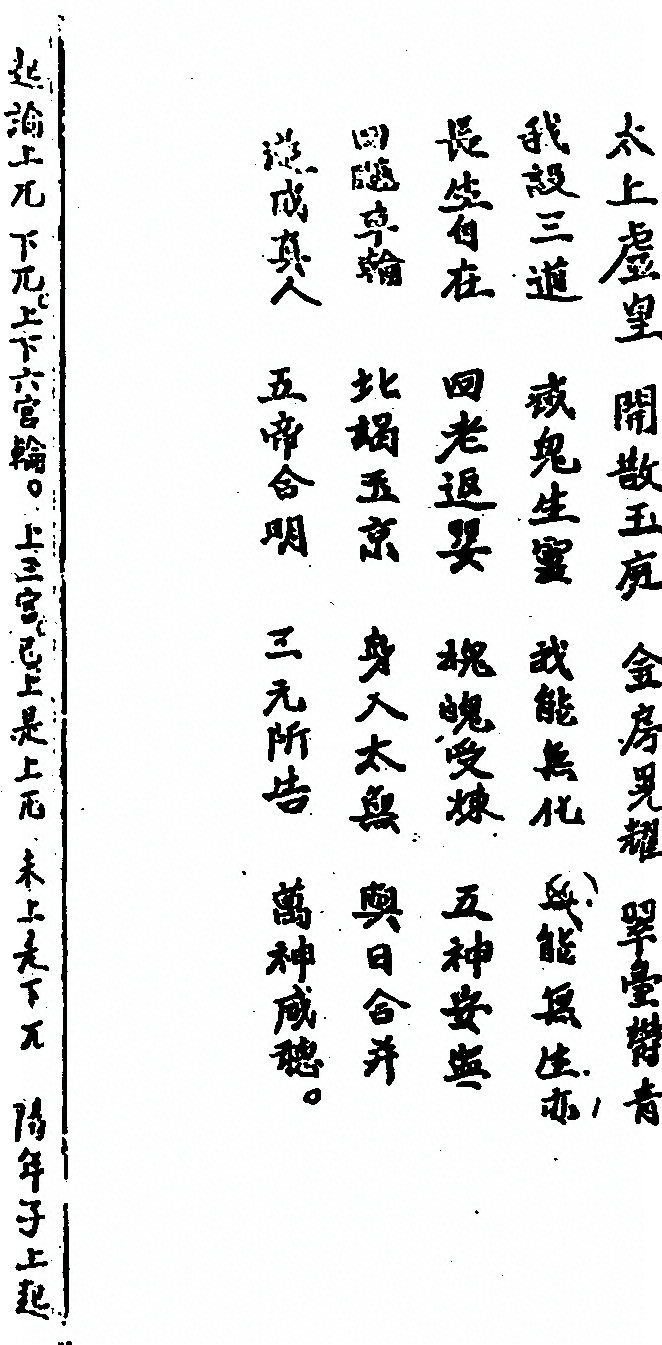 太上虛皇 開散玉庭 金房晃耀 翠臺鬱青
我設三道 感鬼生靈 我能無化 能無生亦
長生自在 回老返嬰 魂魄受煉 五神安
回 車輪 北謁玉京 身入太無 與日合并
成真人 五帝合明 三元所告 萬神咸聽。
起論上兀下兀上下六宫輪。上三宫已上是上兀 未上是下兀 陽年子上起